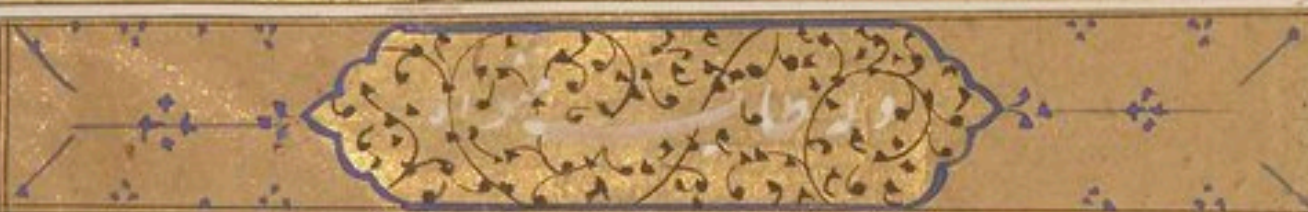 وله طاب مثواه